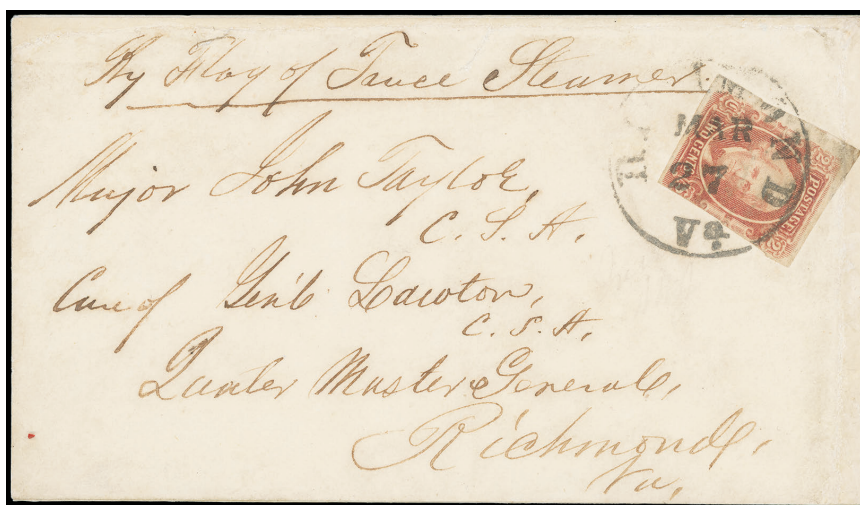 By Flag of Truce Steamer.
Major John Taylor,
C. S. A.
Care of Gen'l Lawton,
C. S. A.
Quarter Master General,
Richmond,
Va.
MAR
27
Va.
TWO CENTS
POSTAGE
2
2